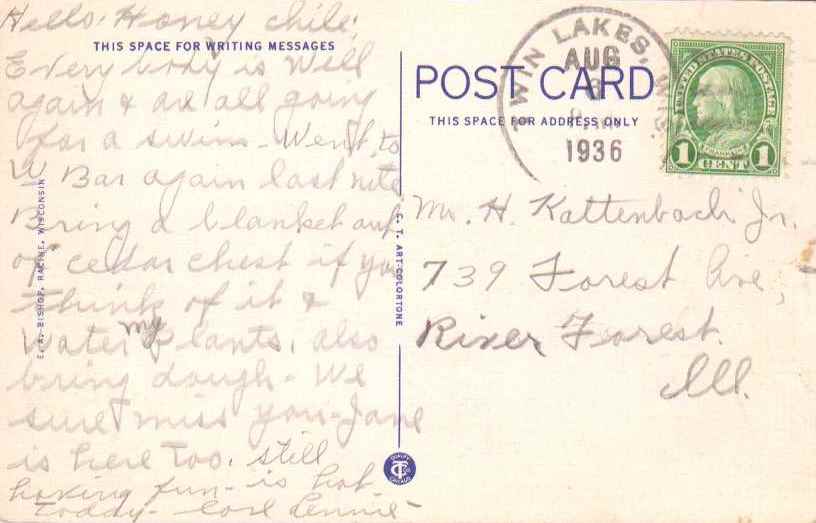 Hello: Honey chile:
THIS SPACE FOR WRITING MESSAGES
Every body is well
again & are all going
for a swim - Went to
W Bar again last nite
Bring a blanket out
of cedar chest if you
think of it &
water my plants, also
bring dough - We
sure miss you - Jane
is here too. still
having fun - is hot
today - love Lennie -
E. A. BISHOP, RACINE, WISCONSIN
C. T. ART-COLORTONE
POST CARD
THIS SPACE FOR ADDRESS ONLY
TWIN LAKES, WIS.
AUG
6
1936
UNITED STATES POSTAGE
FRANKLIN
1 CENT 1
Mr. H. Kattenbach Jr.
739 Forest Ave,
River Forest.
Ill.